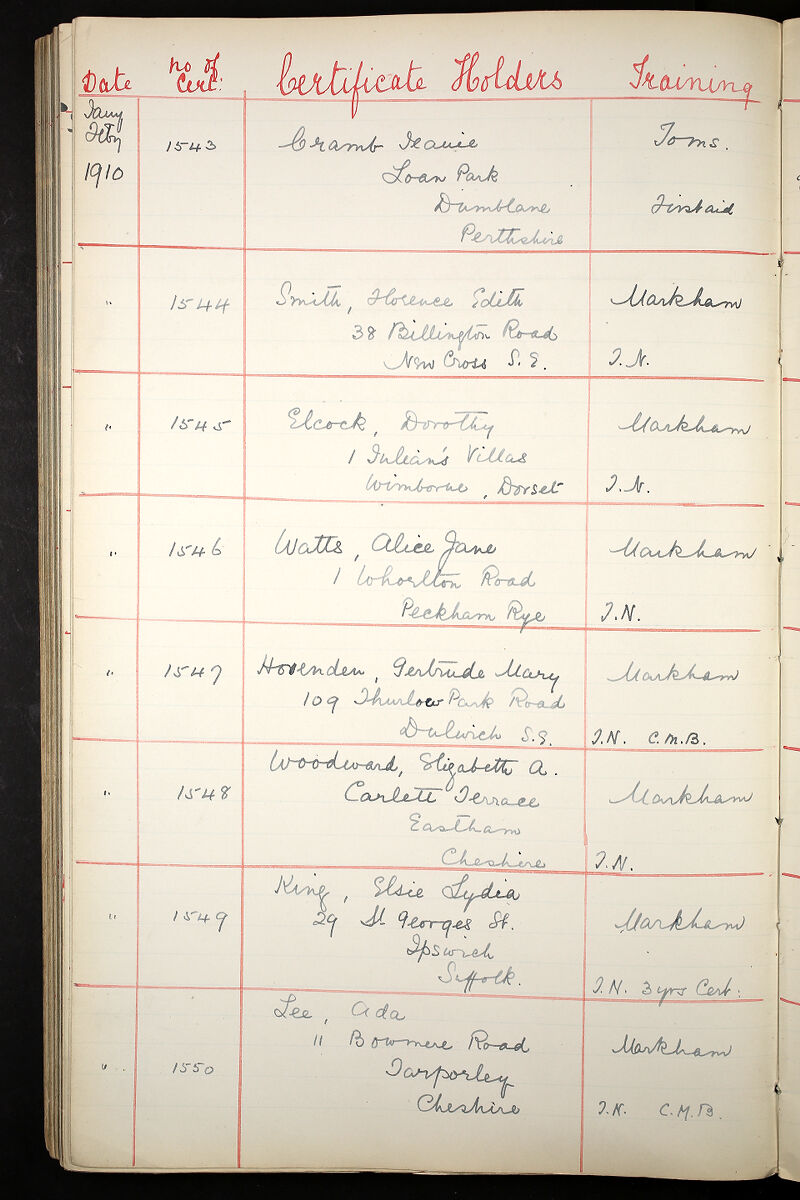 Date no of Cert: Certificate Holders Training
Jany
Feby
1910
1543 Cramb Jeanie Toms.
Loan Park
Dumblane First aid
Perthshire
" 1544 Smith, Florence Edith Markham
38 Billington Road
New Cross S.E. T.N.
" 1545 Elcock, Dorothy Markham
1 Julian's Villas
Wimborne, Dorset T.N.
" 1546 Watts, Alice Jane Markham
1 Whorlton Road
Peckham Rye T.N.
" 1547 Hovenden, Gertrude Mary Markham
109 Thurlow Park Road
Dulwich S.E. T.N. C.M.B.
Woodward, Elizabeth A.
" 1548 Carlett Terrace Markham
Eastham
Cheshire T.N.
King, Elsie Lydia
" 1549 29 St Georges St. Markham
Ipswich
Suffolk. T.N. 3 yrs Cert:
Lee, Ada
11 Bowmere Road Markham
" 1550 Tarporley
Cheshire T.N. C.M.B.